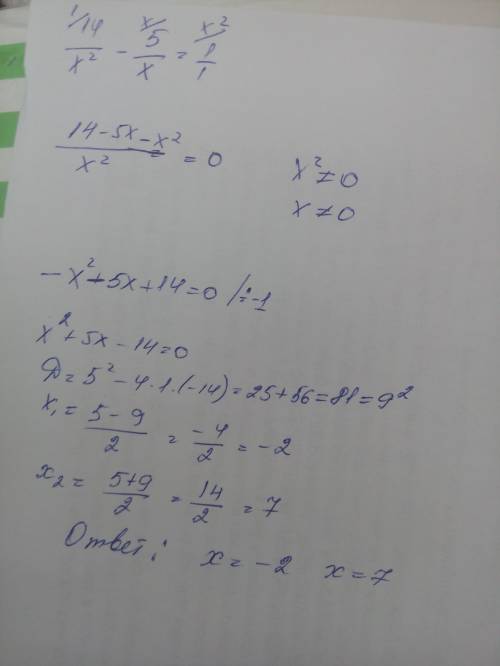 1/14/x² - x/5/x = x²/1/1
(14-5x-x²)/x² = 0 x² ≠ 0
x ≠ 0
-x²-5x+14=0 /:-1
x²+5x-14=0
Д=5²-4·1·(-14)=25+56=81=9²
x₁= (5-9)/2 = -4/2 = -2
x₂= (5+9)/2 = 14/2 = 7
Ответ: x=-2 x=7